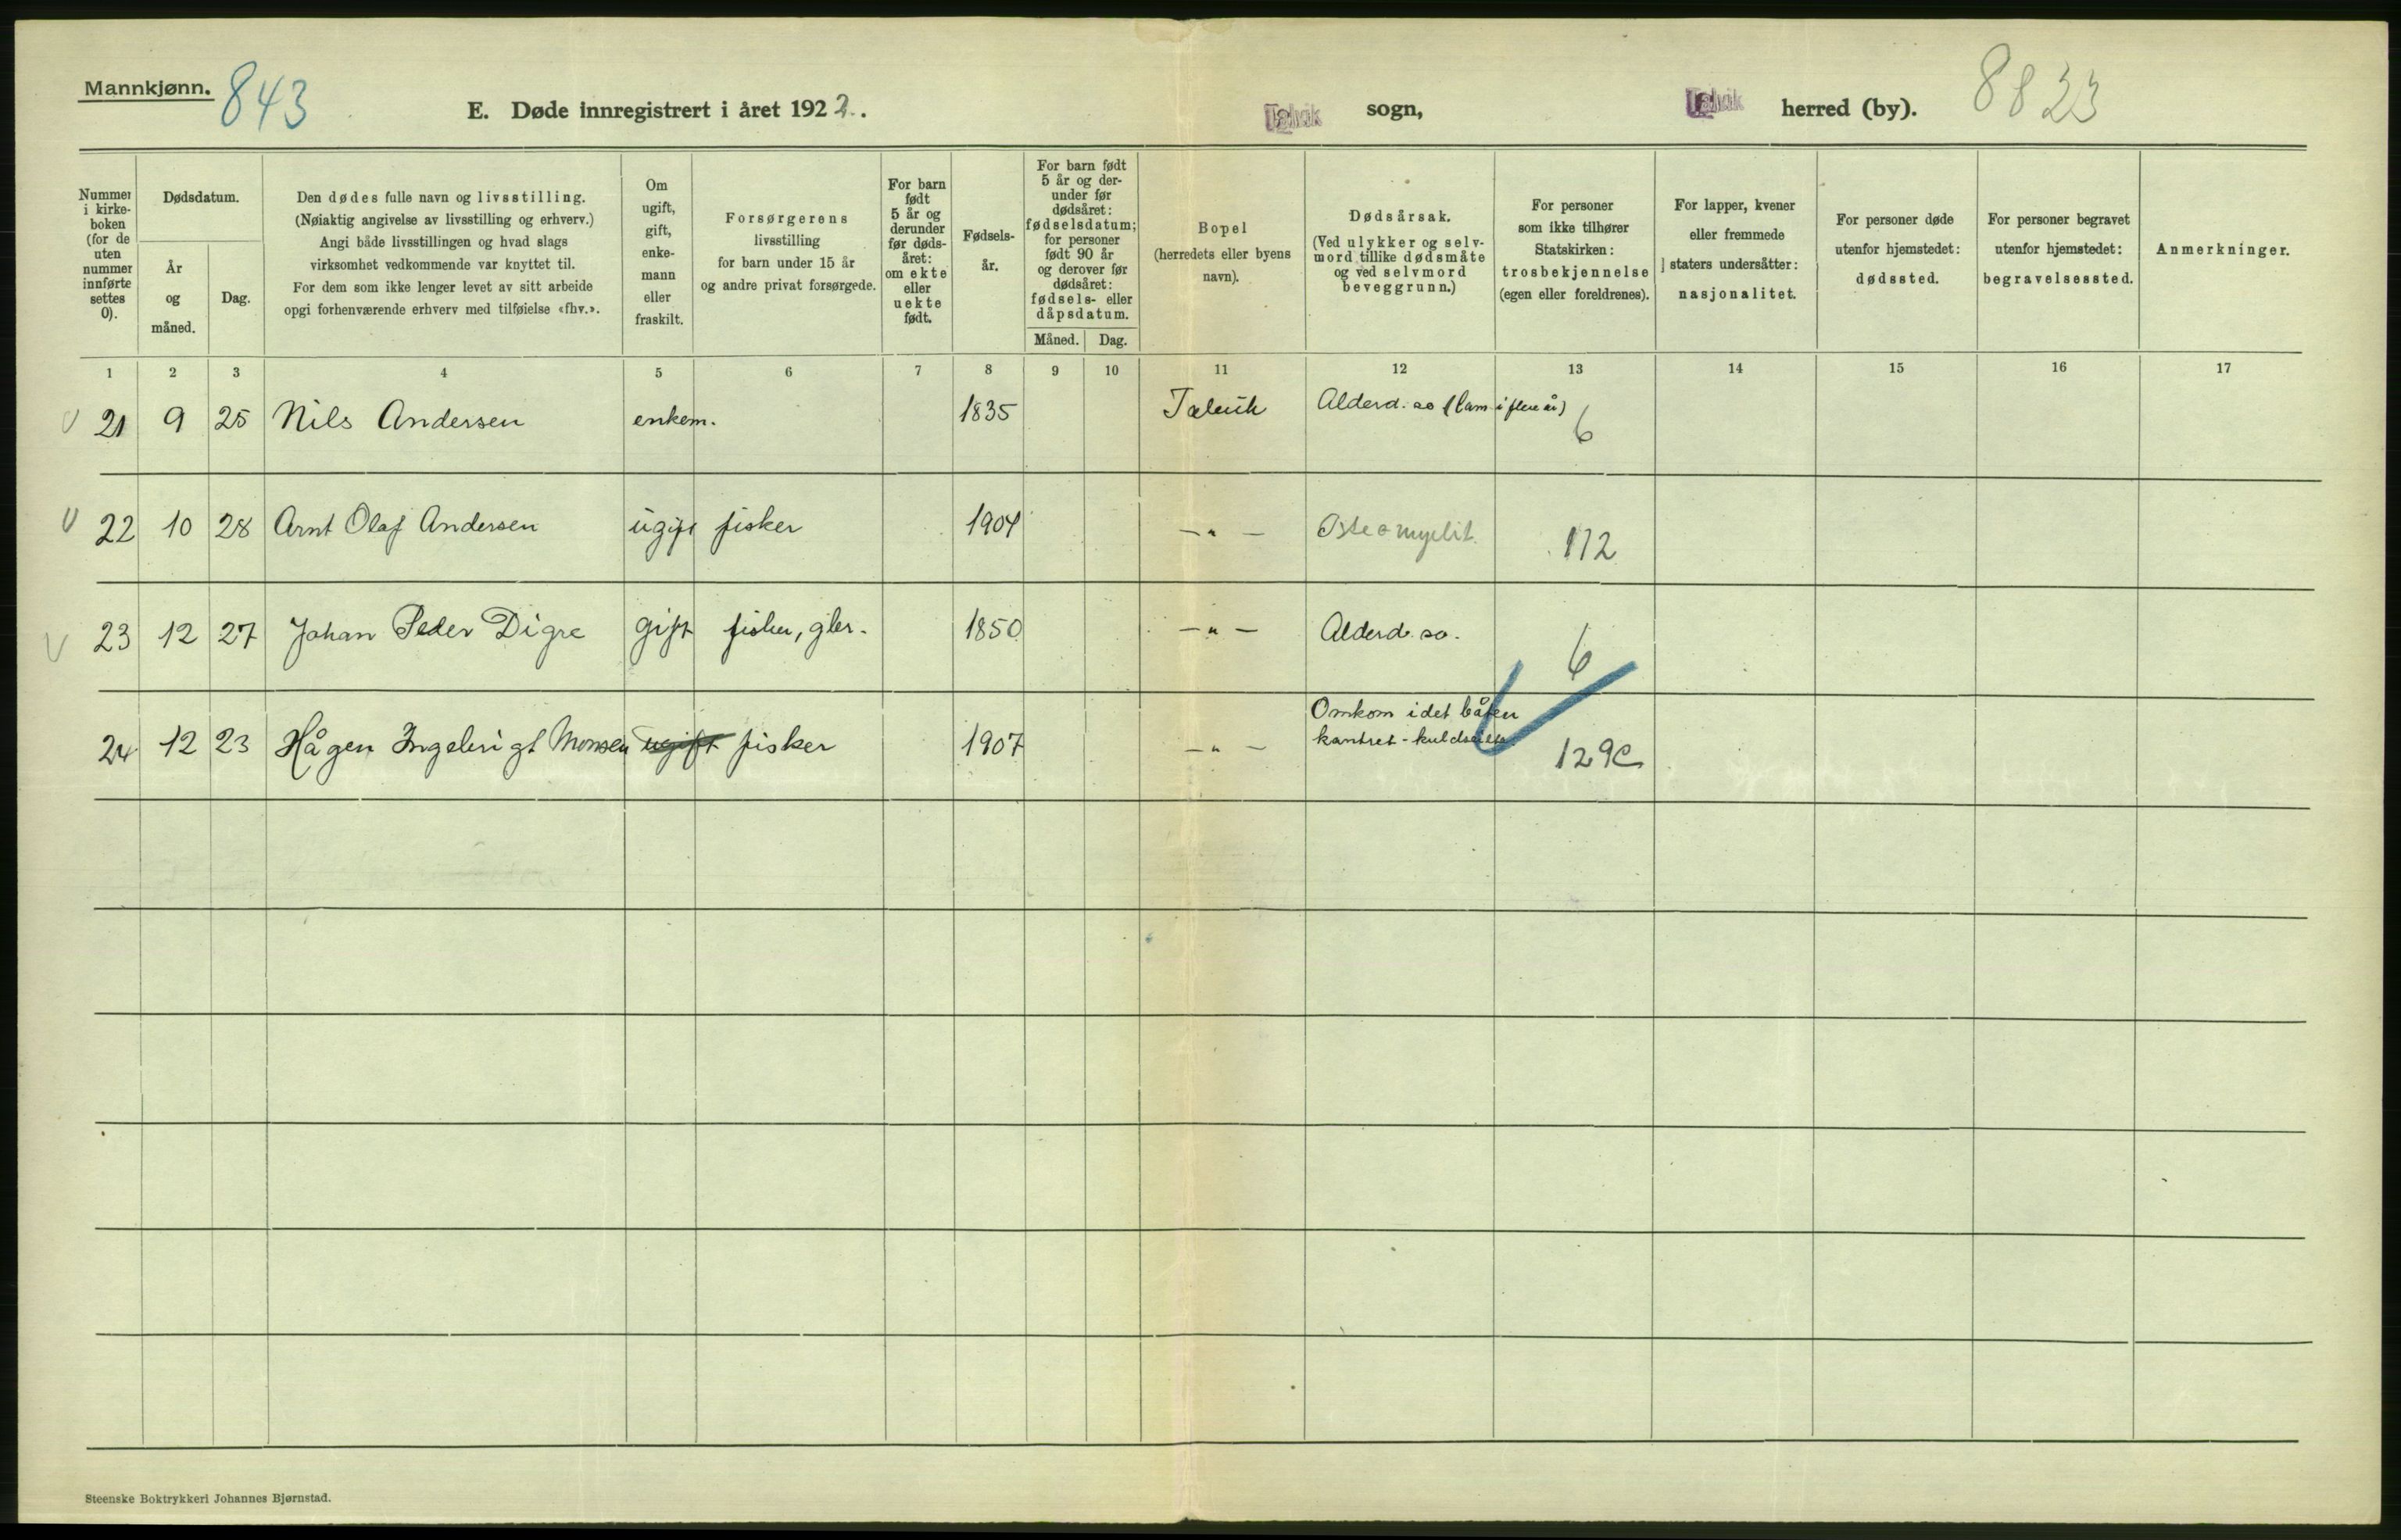 Mannkjønn. 843
E. Døde innregistrert i året 1922. Talvik sogn, Talvik herred (by). 8823
Nummer i kirkeboken (for de uten nummer innførte settes 0).
Dødsdatum.
År og måned.
Dag.
Den dødes fulle navn og livsstilling.
(Nøiaktig angivelse av livsstilling og erhverv.)
Angi både livsstillingen og hvad slags
virksomhet vedkommende var knyttet til.
For dem som ikke lenger levet av sitt arbeide
opgi forhenværende erhverv med tilføielse «fhv.».
Om ugift, gift, enkemann eller fraskilt.
Forsørgerens
livsstilling
for barn under 15 år
og andre privat forsørgede.
For barn født 5 år og derunder før dødsåret: om ekte eller uekte født.
Fødselsår.
For barn født 5 år og derunder før dødsåret: fødselsdatum; for personer født 90 år og derover før dødsåret: fødsels- eller dåpsdatum.
Måned. Dag.
Bopel
(herredets eller byens
navn).
Dødsårsak.
(Ved ulykker og selvmord tillike dødsmåte og ved selvmord beveggrunn.)
For personer
som ikke tilhører
Statskirken:
trosbekjennelse
(egen eller foreldrenes).
For lapper, kvener
eller fremmede
staters undersåtter:
nasjonalitet.
For personer døde
utenfor hjemstedet:
dødssted.
For personer begravet
utenfor hjemstedet:
begravelsessted.
Anmerkninger.
1 2 3 4 5 6 7 8 9 10 11 12 13 14 15 16 17
21 9 25 Nils Andersen enkem. 1835 Talvik Alderd. so (lam i flere år) 6
22 10 28 Arnt Olaf Andersen ugift fisker 1904 — " — Osteomyelit. 112
23 12 27 Johan Peder Digre gift fisker, gbr. 1850 — " — Alderd. so. 6
24 12 23 Hågen Ingebrigt Monsen ugift fisker 1907 — " — Omkom idet båten
kantret - 129c
Steenske Boktrykkeri Johannes Bjørnstad.